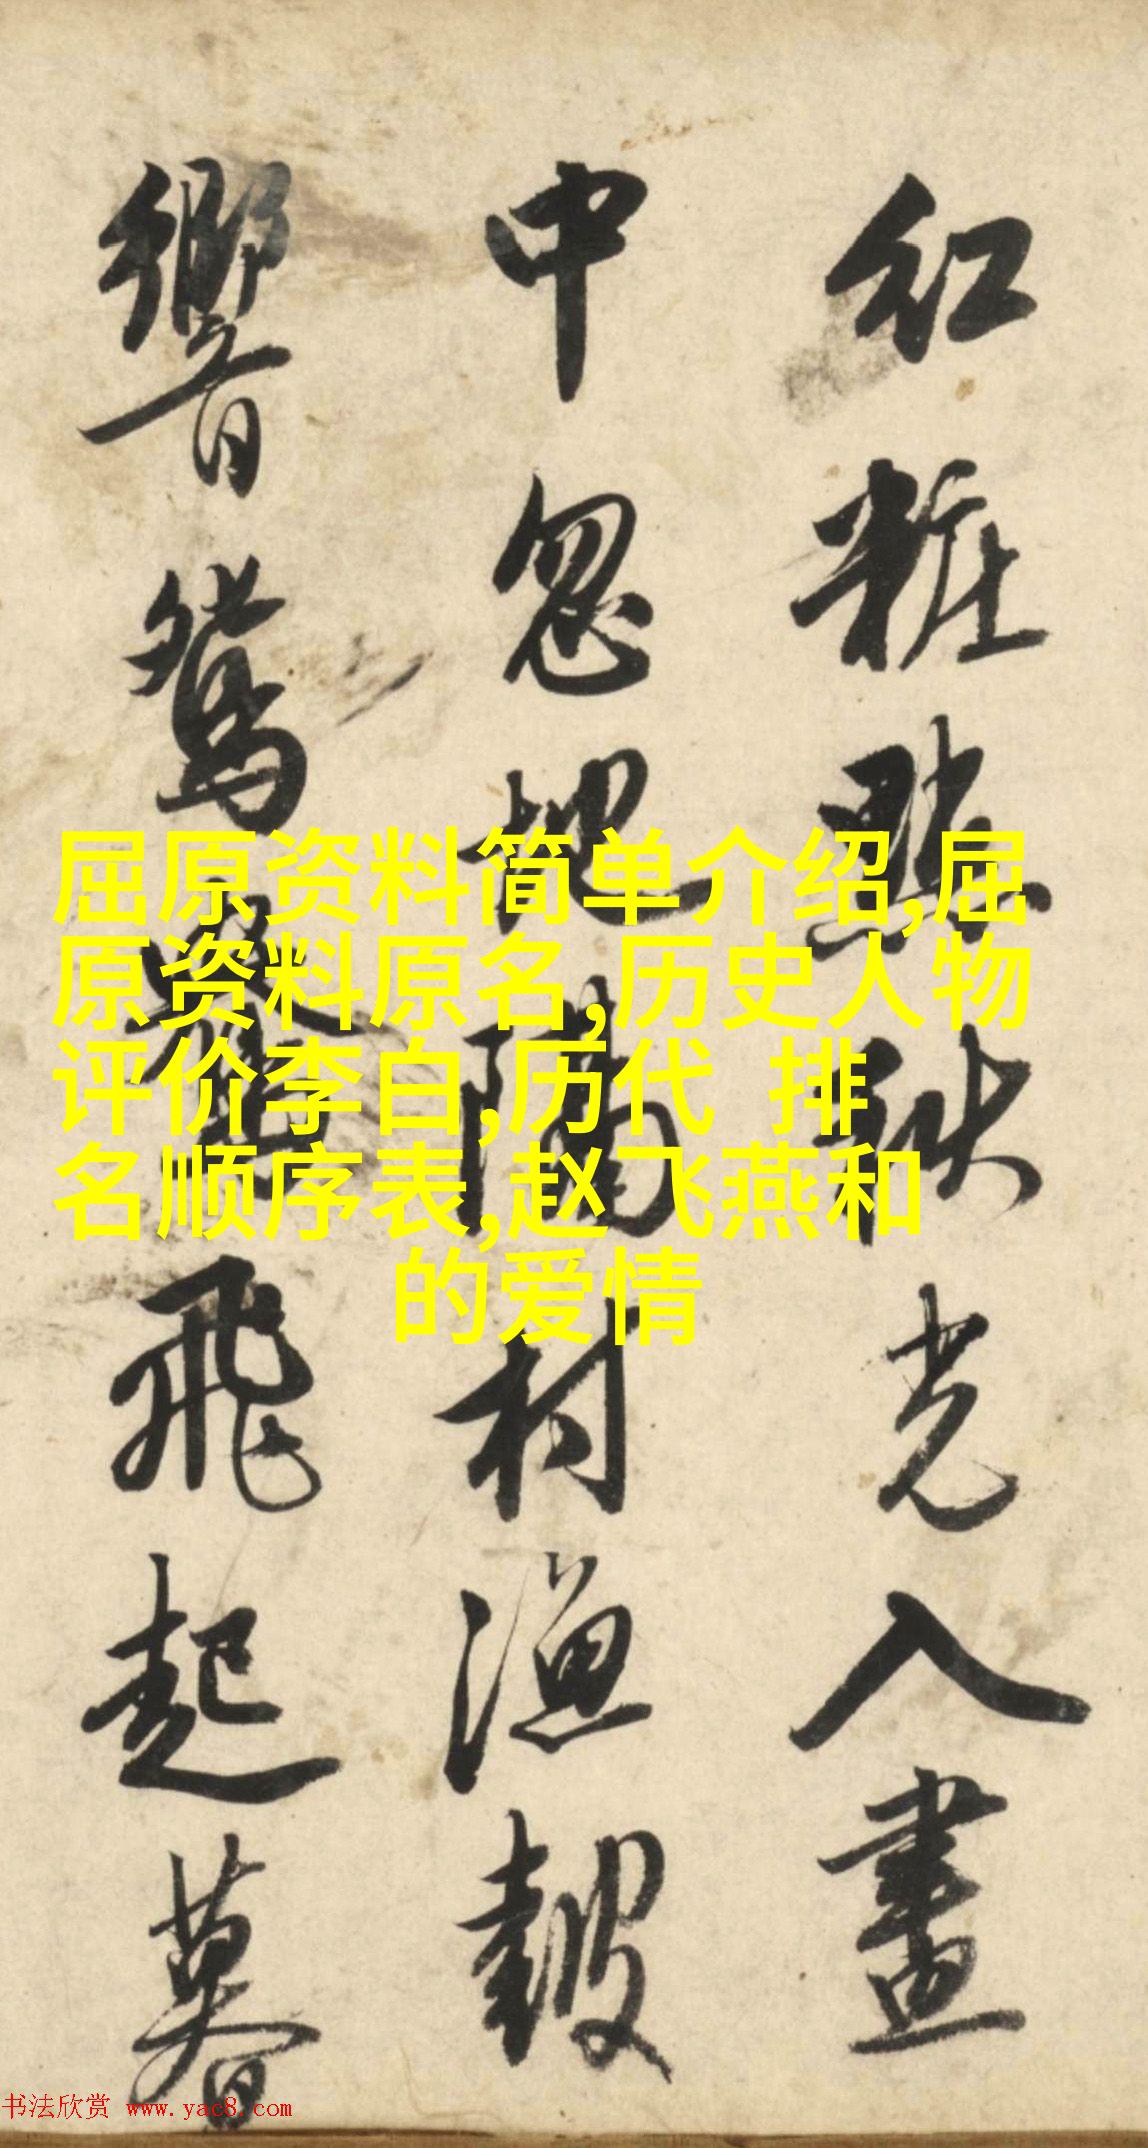 紅粧點秋光入畫
中忽地隔村漁鼓
響鴛飛起暮
屈原资料简单介绍,屈
原资料原名,历史人物
评价李白,历代 排
名顺序表,赵飞燕和
的爱情
书法欣赏 www.yac8.com